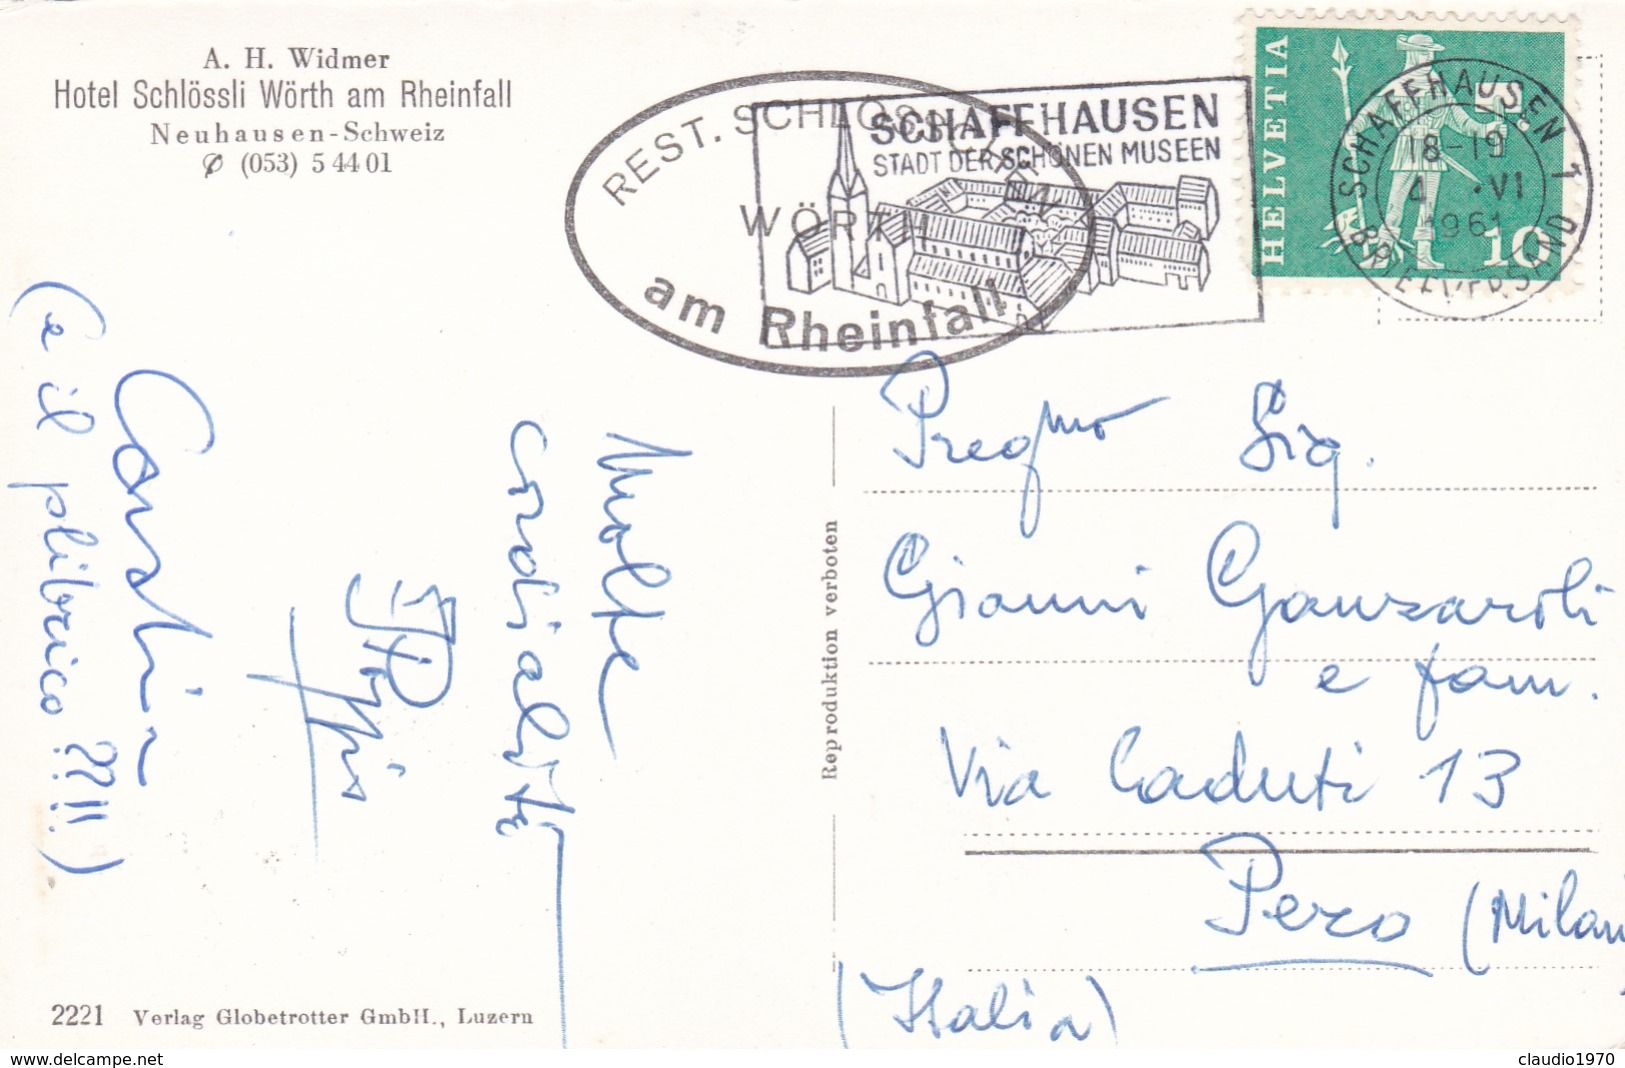 A. H. Widmer
Hotel Schlössli Wörth am Rheinfall
Neuhausen-Schweiz
✆ (053) 5 44 01
REST. SCHLÖSSCHEN
WÖRTH
am Rheinfall
SCHAFFHAUSEN
STADT DER SCHÖNEN MUSEEN
HELVETIA
10
SCHAFFHAUSEN 1
18-19
4. VI
1961
BRIEFVERSAND
Molte
cordialità
(e il plibrico ??!!)
Reproduktion verboten
Pregmo Sig.
Gianni Ganzaroli
e fam.
Via Caduti 13
Pero (Milano
(Italia)
2221 Verlag Globetrotter GmbH., Luzern
www.delcampe.net
claudio1970